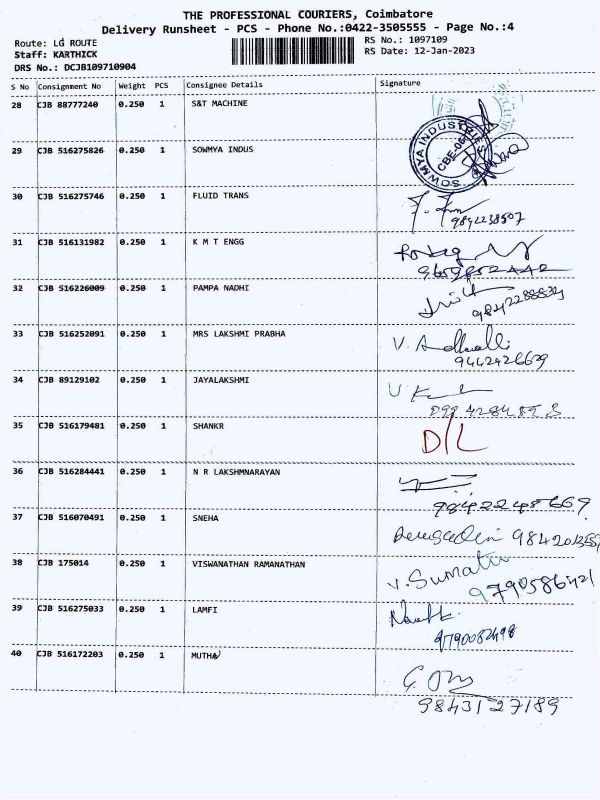 THE PROFESSIONAL COURIERS, Coimbatore
Delivery Runsheet - PCS - Phone No.:0422-3505555 - Page No.:4
Route: LG ROUTE
Staff: KARTHICK
DRS No.: DCJB109710904
RS No.: 1097109
RS Date: 12-Jan-2023
S No Consignment No Weight PCS Consignee Details Signature
28 CJB 88777240 0.250 1 S&T MACHINE
29 CJB 516275826 0.250 1 SOWMYA INDUS
SOWMYA INDUSTRIES
CBE-06
30 CJB 516275746 0.250 1 FLUID TRANS
9842238507
31 CJB 516131982 0.250 1 K M T ENGG
9659852442
32 CJB 516226009 0.250 1 PAMPA NADHI
33 CJB 516252091 0.250 1 MRS LAKSHMI PRABHA
9442426629
34 CJB 89129102 0.250 1 JAYALAKSHMI
35 CJB 516179481 0.250 1 SHANKR D/L
36 CJB 516284441 0.250 1 N R LAKSHMNARAYAN
9842248669
37 CJB 516070491 0.250 1 SNEHA
38 CJB 175014 0.250 1 VISWANATHAN RAMANATHAN V. Sumathi
9790586421
39 CJB 516275033 0.250 1 LAMFI
9790082498
40 CJB 516172203 0.250 1 MUTHA
9843127189